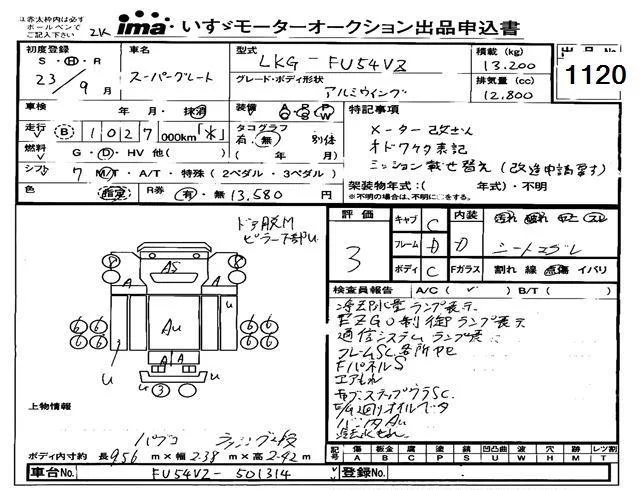 1.赤太枠内は必ず
ボールペンで
ご記入下さい
2K
ima いすゞモーターオークション出品申込書
初度登録
S・H・R
23/9月
車名
スーパーグレート
型式
LKG-FU54VZ
グレード・ボディ形状
アルミウイング
積載 (kg)
13.200
排気量 (cc)
12.800
出品No.
1120
車検 年・月・抹消
装備
走行 B 1027 000km「km」
タコグラフ
有・無 別体
( 年 月)
燃料 G・D・HV 他( )
シフト 7 M/T・A/T・特殊(2ペダル・3ペダル)
色 指定
R券 有・無 13,580 円
特記事項
メーター改ざん
オドワケタ表記
ミッション載せ替え(改造申請要す)
架装物年式:( 年式)・不明
※不明の場合は、不明に○をする。
ドア脱M
ピラー下部U
AS
Au
A A
A
u
u
u
6 6 6 6
6 6 6 6
3
評価
3
キャブ C
フレーム D
ボディ C
内装 D
汚れ 破れ コゲ スレ
シートコゲレ
Fガラス 割れ 線 点傷 イバリ
検査員報告 A/C( ✓ ) B/T( )
冷却水量ランプ表示
EZGO制御ランプ表示
通信システムランプ表示
フレームSC各所サビ
FパネルS
エアもれ
キャブステップクラSC.
E/G廻りオイルベタ
バンパAu
上物情報
パブコ
ラッシング2段
ボディ内寸約 長956 m×幅2.38 m×高2.42 m
記号
傷 板金 腐 塗 錆 凹凸曲 波 穴 時 レツ割
A B C P S U W H M T
車台No. FU54VZ-501314
登録No.